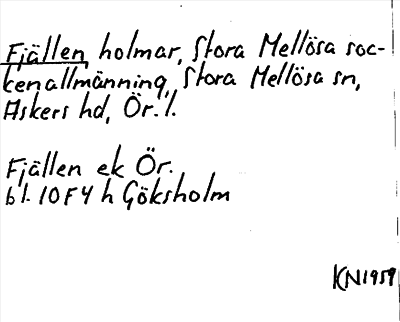 Fjällen, holmar, Stora Mellösa soc-
kenallmänning, Stora Mellösa sn,
Askers hd, Ör. l.
Fjällen ek Ör.
bl. 10F4 h Göksholm
KN1959